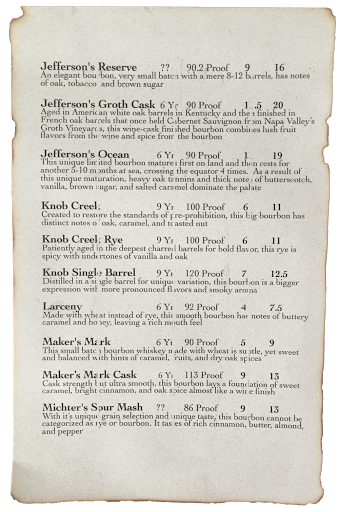 Jefferson's Reserve ?? 90.2 Proof 9 16
An elegant bourbon, very small batch with a mere 8-12 barrels, has notes
of oak, tobacco and brown sugar
Jefferson's Groth Cask 6 Yr 90 Proof 20
Aged in American white oak barrels in Kentucky and then finished in
French oak barrels that once held Cabernet Sauvignon from Napa Valley's
Groth Vineyards, this wine-cask finished bourbon combines lush fruit
flavors from the wine and spice from the bourbon
Jefferson's Ocean 6 Yr 90 Proof 19
This unique limited bourbon matures first on land and then rests for
another 5-10 months at sea, crossing the equator 4 times. As a result of
this unique maturation, heavy oak tannins and thick notes of butterscotch,
vanilla, brown sugar, and salted caramel dominate the palate
Knob Creek 9 Yr 100 Proof 6 11
Created to restore the standards of pre-prohibition, this big bourbon has
distinct notes of oak, caramel, and toasted nut
Knob Creek Rye 9 Yr 100 Proof 6 11
Patiently aged in the deepest charred barrels for bold flavor, this rye is
spicy with undertones of vanilla and oak
Knob Single Barrel 9 Yr 120 Proof 7 12.5
Distilled in a single barrel for unique variation, this bourbon is a bigger
expression with more pronounced flavors and smoky aroma
Larceny 6 Yr 92 Proof 4 7.5
Made with wheat instead of rye, this smooth bourbon has notes of buttery
caramel and honey, leaving a rich mouth feel
Maker's Mark 6 Yr 90 Proof 5 9
This small batch bourbon whiskey made with wheat is subtle, yet sweet
and balanced with hints of caramel, fruits, and dry oak spices
Maker's Mark Cask 6 Yr 113 Proof 9 13
Cask strength but ultra smooth, this bourbon lays a foundation of sweet
caramel, bright cinnamon, and oak spice almost like a wine finish
Michter's Sour Mash ?? 86 Proof 9 13
With it's unique grain selection and unique taste, this bourbon cannot be
categorized as rye or bourbon. It tastes of rich cinnamon, butter, almond,
and pepper